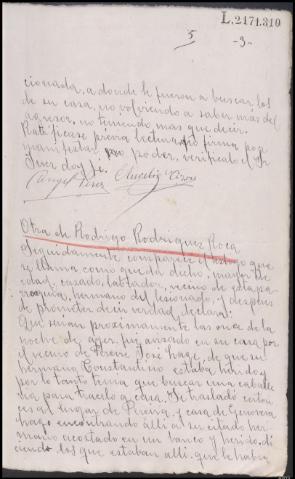 L.2171.310
5
-3-
cionada, a donde le fueron a buscar los
de su casa, no volviendo a saber mas del
agresor, no teniendo mas que decir.
Ratificase previa lectura no firma por
manifestar no poder, verificalo el Sr
Juez doy fe.
Angel Perez
Otra de Rodrigo Rodriguez Roca
Seguidamente comparece el testigo que
se llama como queda dicho, mayor de
edad, casado, labrador, vecino de esta pa-
rroquia, hermano del lesionado y despues
de prometer decir verdad, declara:
Que serian proximamente las once de la
noche de ayer, fué avisado en su casa por
el vecino de Pereira José Lrago, de que su
hermano Constantino estaba herido y
por lo tanto tenia que buscar una caballe-
ria para traerlo a casa. Se trasladó enton-
ces al lugar de Pereira y casa de Genoveva
encontrando alli a su citado her-
mano acostado en un banco y herido, di-
ciendo los que estaban alli que le habia